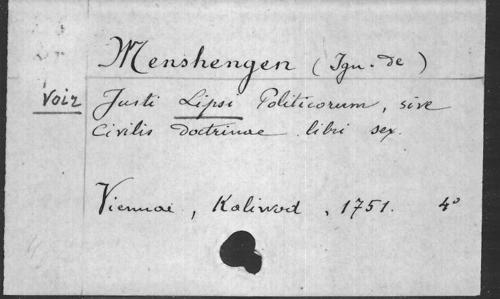 Menshengen (Ign. de)
Voir Justi Lipsi Politicorum, sive
Civilis doctrinae libri sex.
Viennae, Kaliwod, 1751. 4°